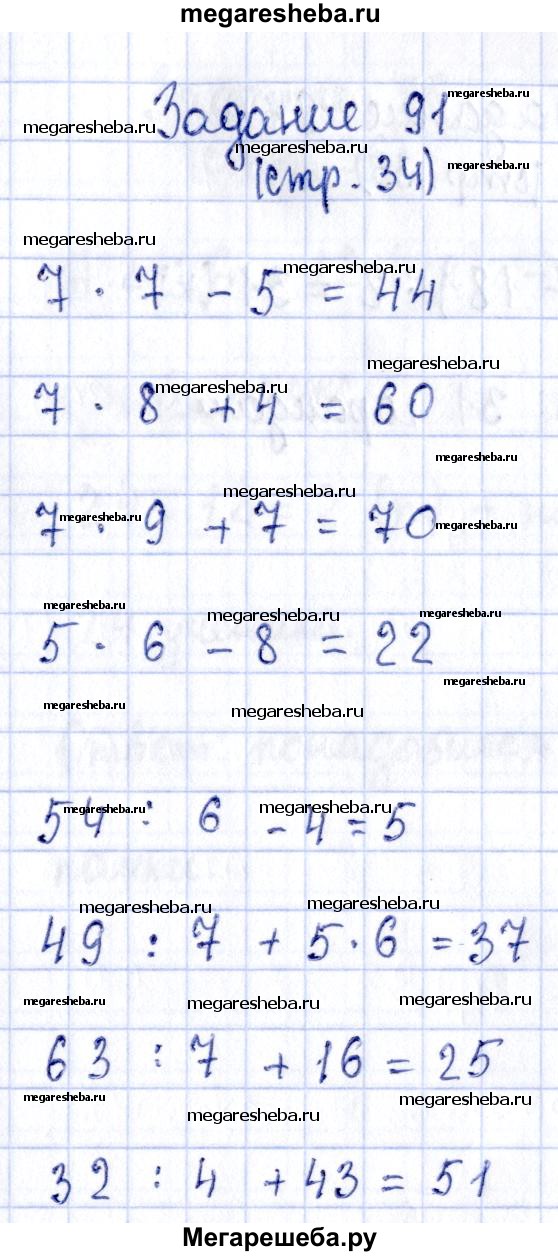 megaresheba.ru
Задание 91
(стр. 34)
7 · 7 - 5 = 44
7 · 8 + 4 = 60
7 · 9 + 7 = 70
5 · 6 - 8 = 22
54 : 6 - 4 = 5
49 : 7 + 5 · 6 = 37
63 : 7 + 16 = 25
32 : 4 + 43 = 51
Мегарешеба.ру